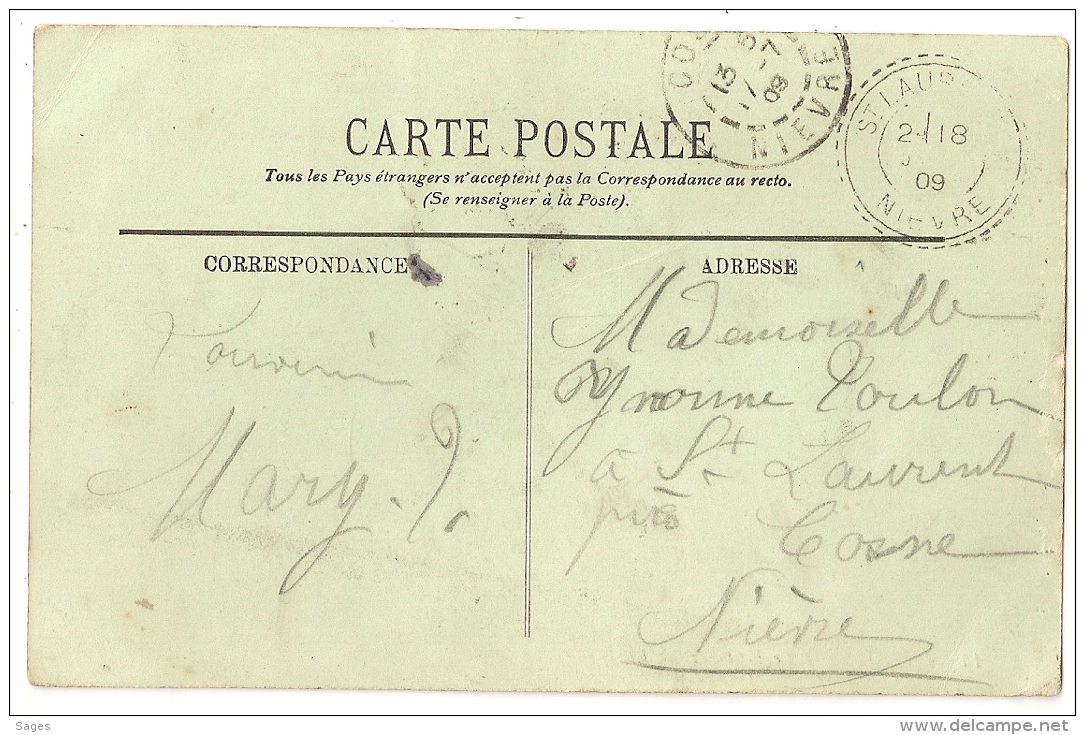 COS
13 5
1 - 7
09
NIEVRE
ST LAUR
2 - 18
09
NIEVRE
CARTE POSTALE
Tous les Pays étrangers n'acceptent pas la Correspondance au recto.
(Se renseigner à la Poste).
CORRESPONDANCE
Souvenir
Mary. J.
ADRESSE
Mademoiselle
Yvonne Toulon
à St Laurent
près Cosne
Nièvre
Sages
www.delcampe.net